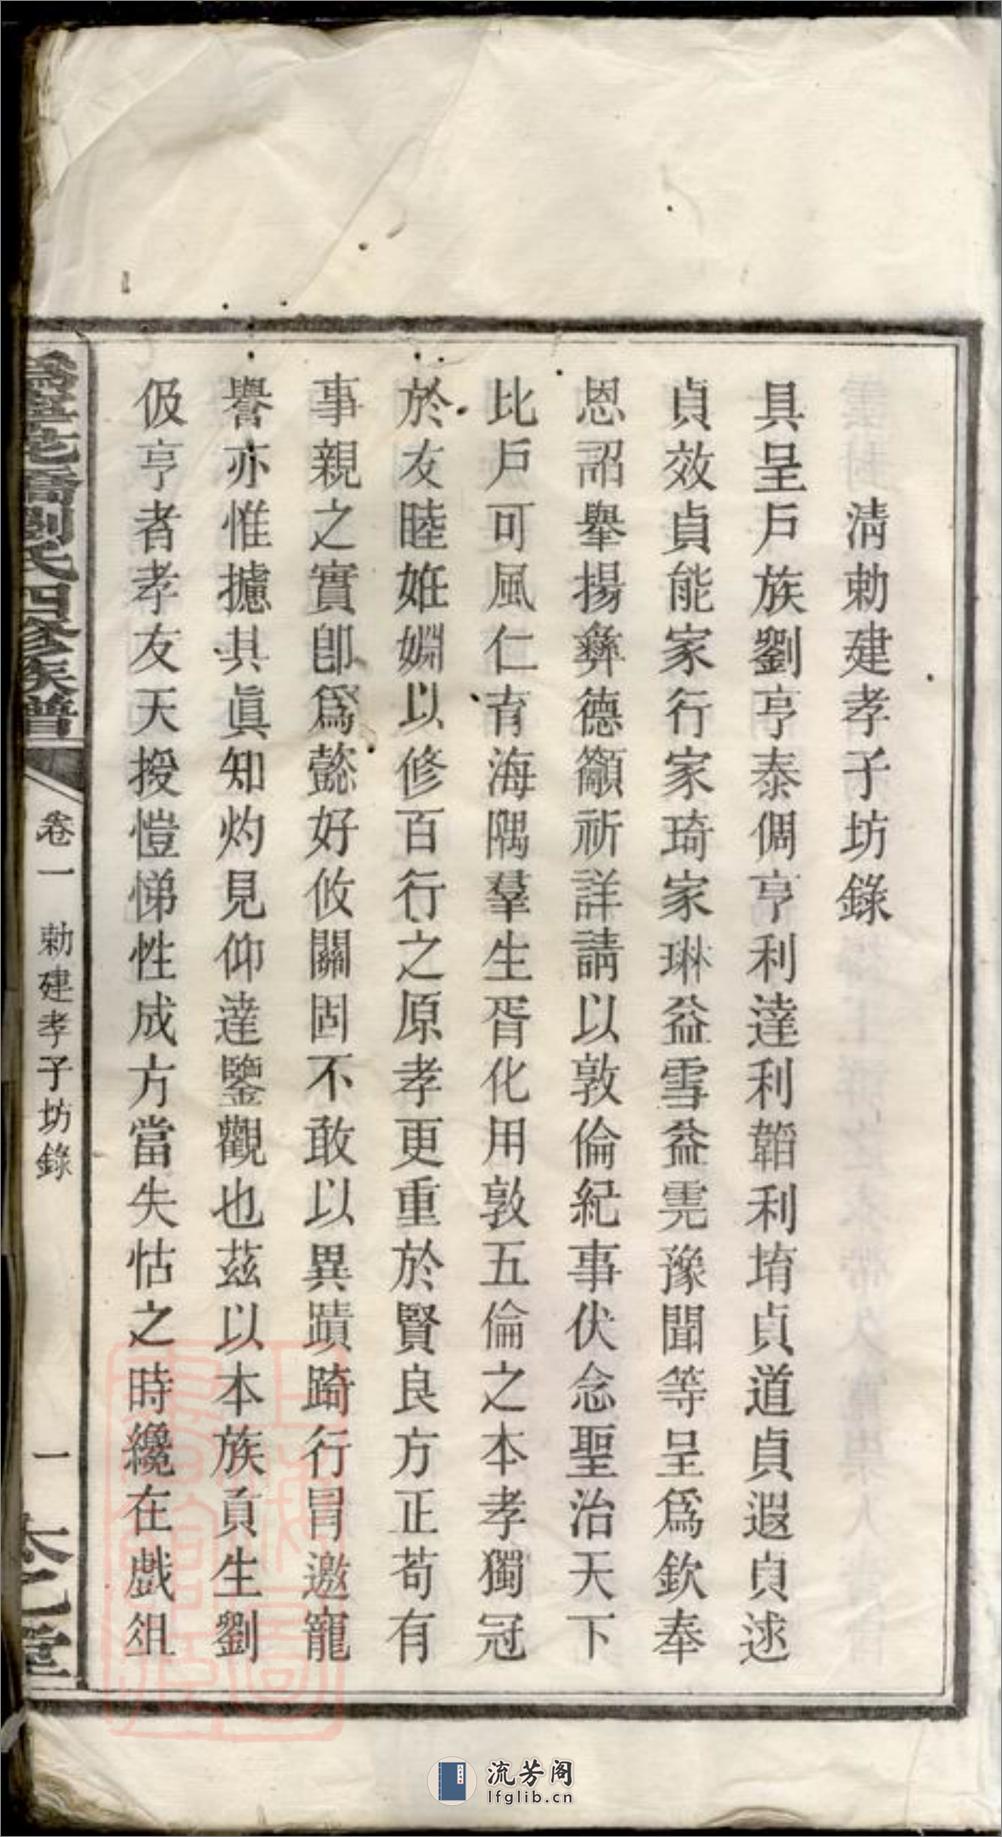 清勅建孝子坊錄
具呈戶族劉亨泰倜亨利達利韜利堉貞道貞遐貞逑
貞效貞能家行家琦家琳益雪益雲豫聞等呈爲欽奉
恩詔舉揚彝德籲祈詳請以敦倫紀事伏念聖治天下
比戶可風仁育海隅羣生胥化用敦五倫之本孝獨冠
於友睦姙婣以修百行之原孝更重於賢良方正苟有
事親之實卽爲懿好攸關固不敢以異蹟踦行冒邀寵
譽亦惟攄其眞知灼見仰達鑒觀也茲以本族貟生劉
伋亨者孝友天授愷悌性成方當失怙之時纔在戲俎
爲寧花橋劉氏四修族譜
卷一
勅建孝子坊錄
一
太乙堂
流芳阁
lfglib.cn